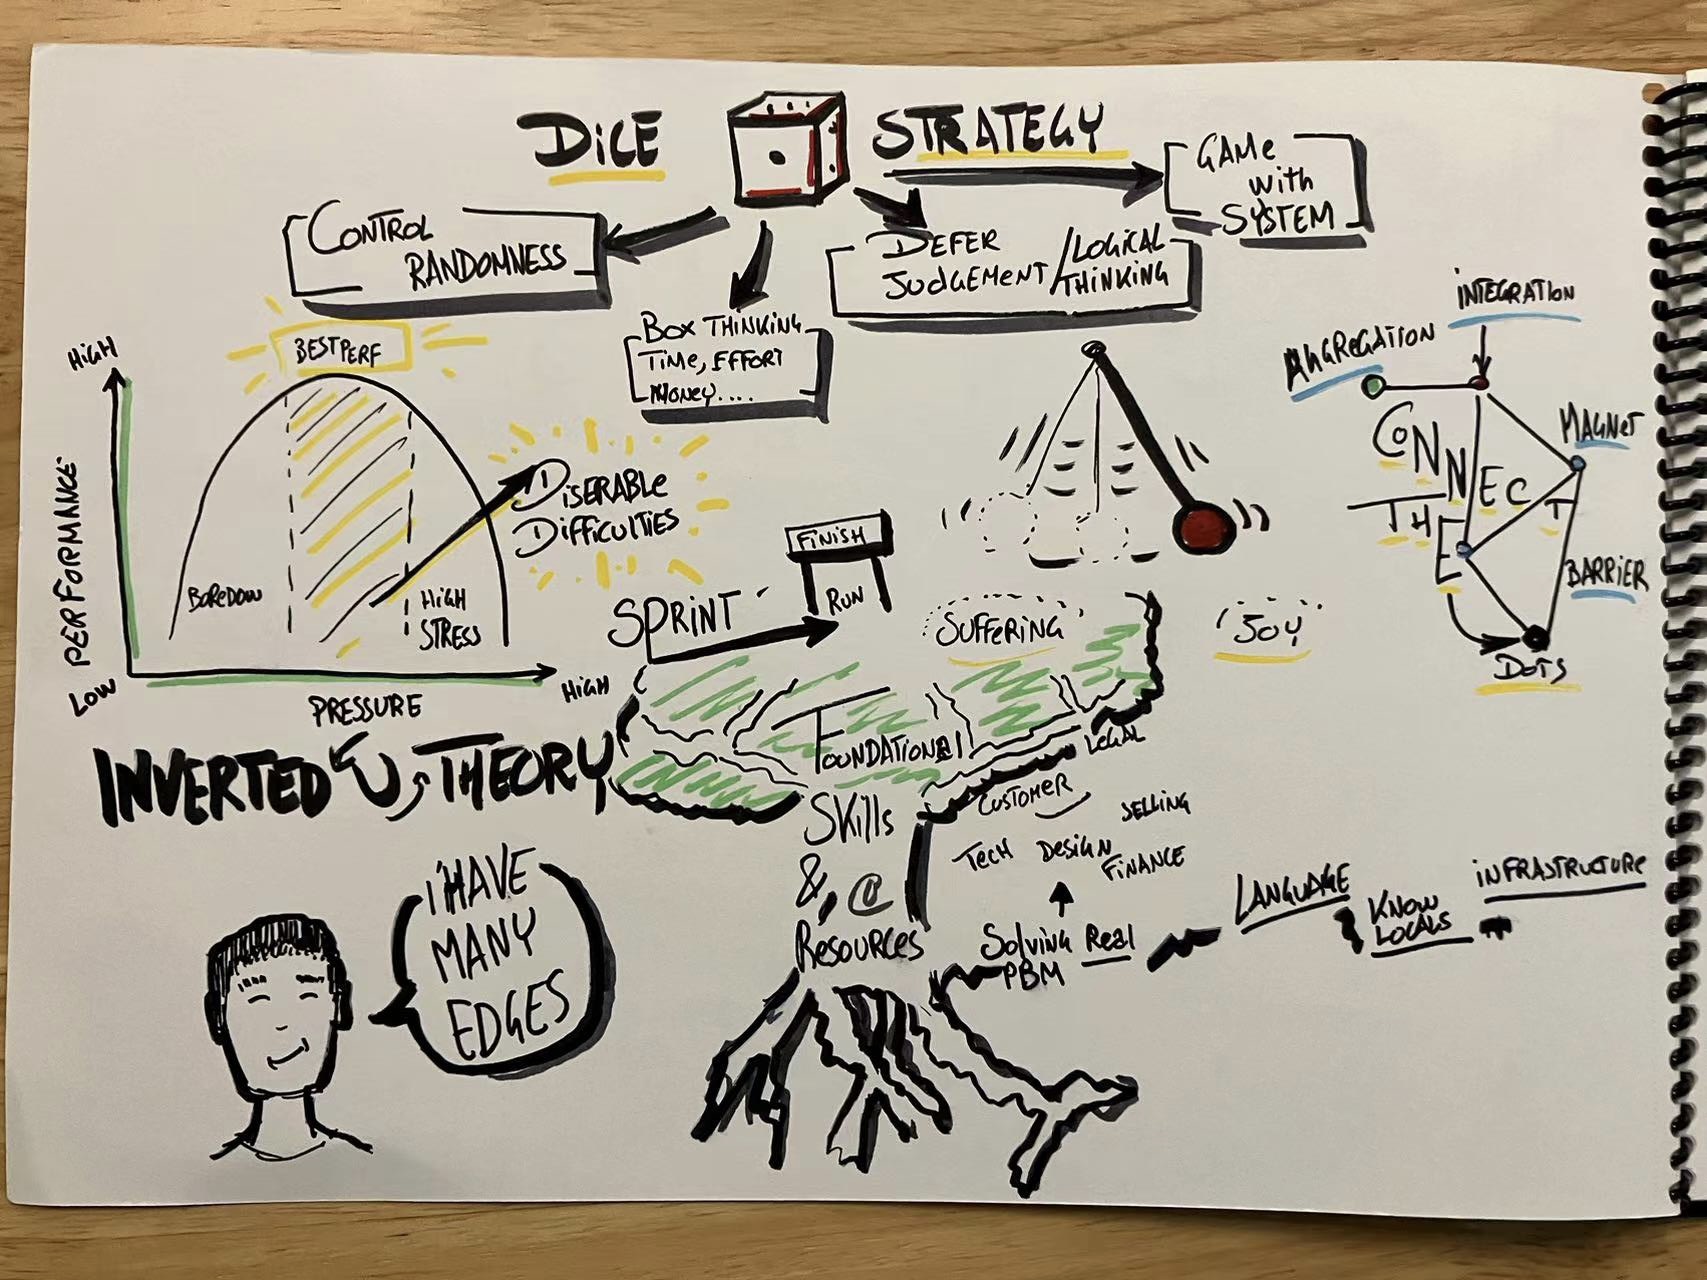 DiCE STRATEGY
GAMe
with
SYSTEM
CONTROL
RANDOMNESS
DEFER
JUDGEMENT
/LOGICAL
THINKING
BOX THINKING
TIME, EFFORT
MONEY....
HiGH
BEST PERF
PERFORMANCE
BOREDOW
HiGH
STRESS
LOW
PRESSURE
HIGH
DiSERABLE
DiffiCULTIES
INVERTED "U" THEORY
SPRINT
FiNiSH
RUN
SUFFERING
JOY
iNTEGRATION
AGGREGATION
MAGNET
CONNECT
THE
BARRIER
DOTS
FOUNDATIONAL
SKills
&
Resources
LEGAL
CUSTOMER
SELLING
TECH
DESIGN
FINANCE
Solving Real
PBM
LANGUAGE
KNOW
LOCALS
iNFRASTRUCTURE
i HAVE
MANY
EDGES